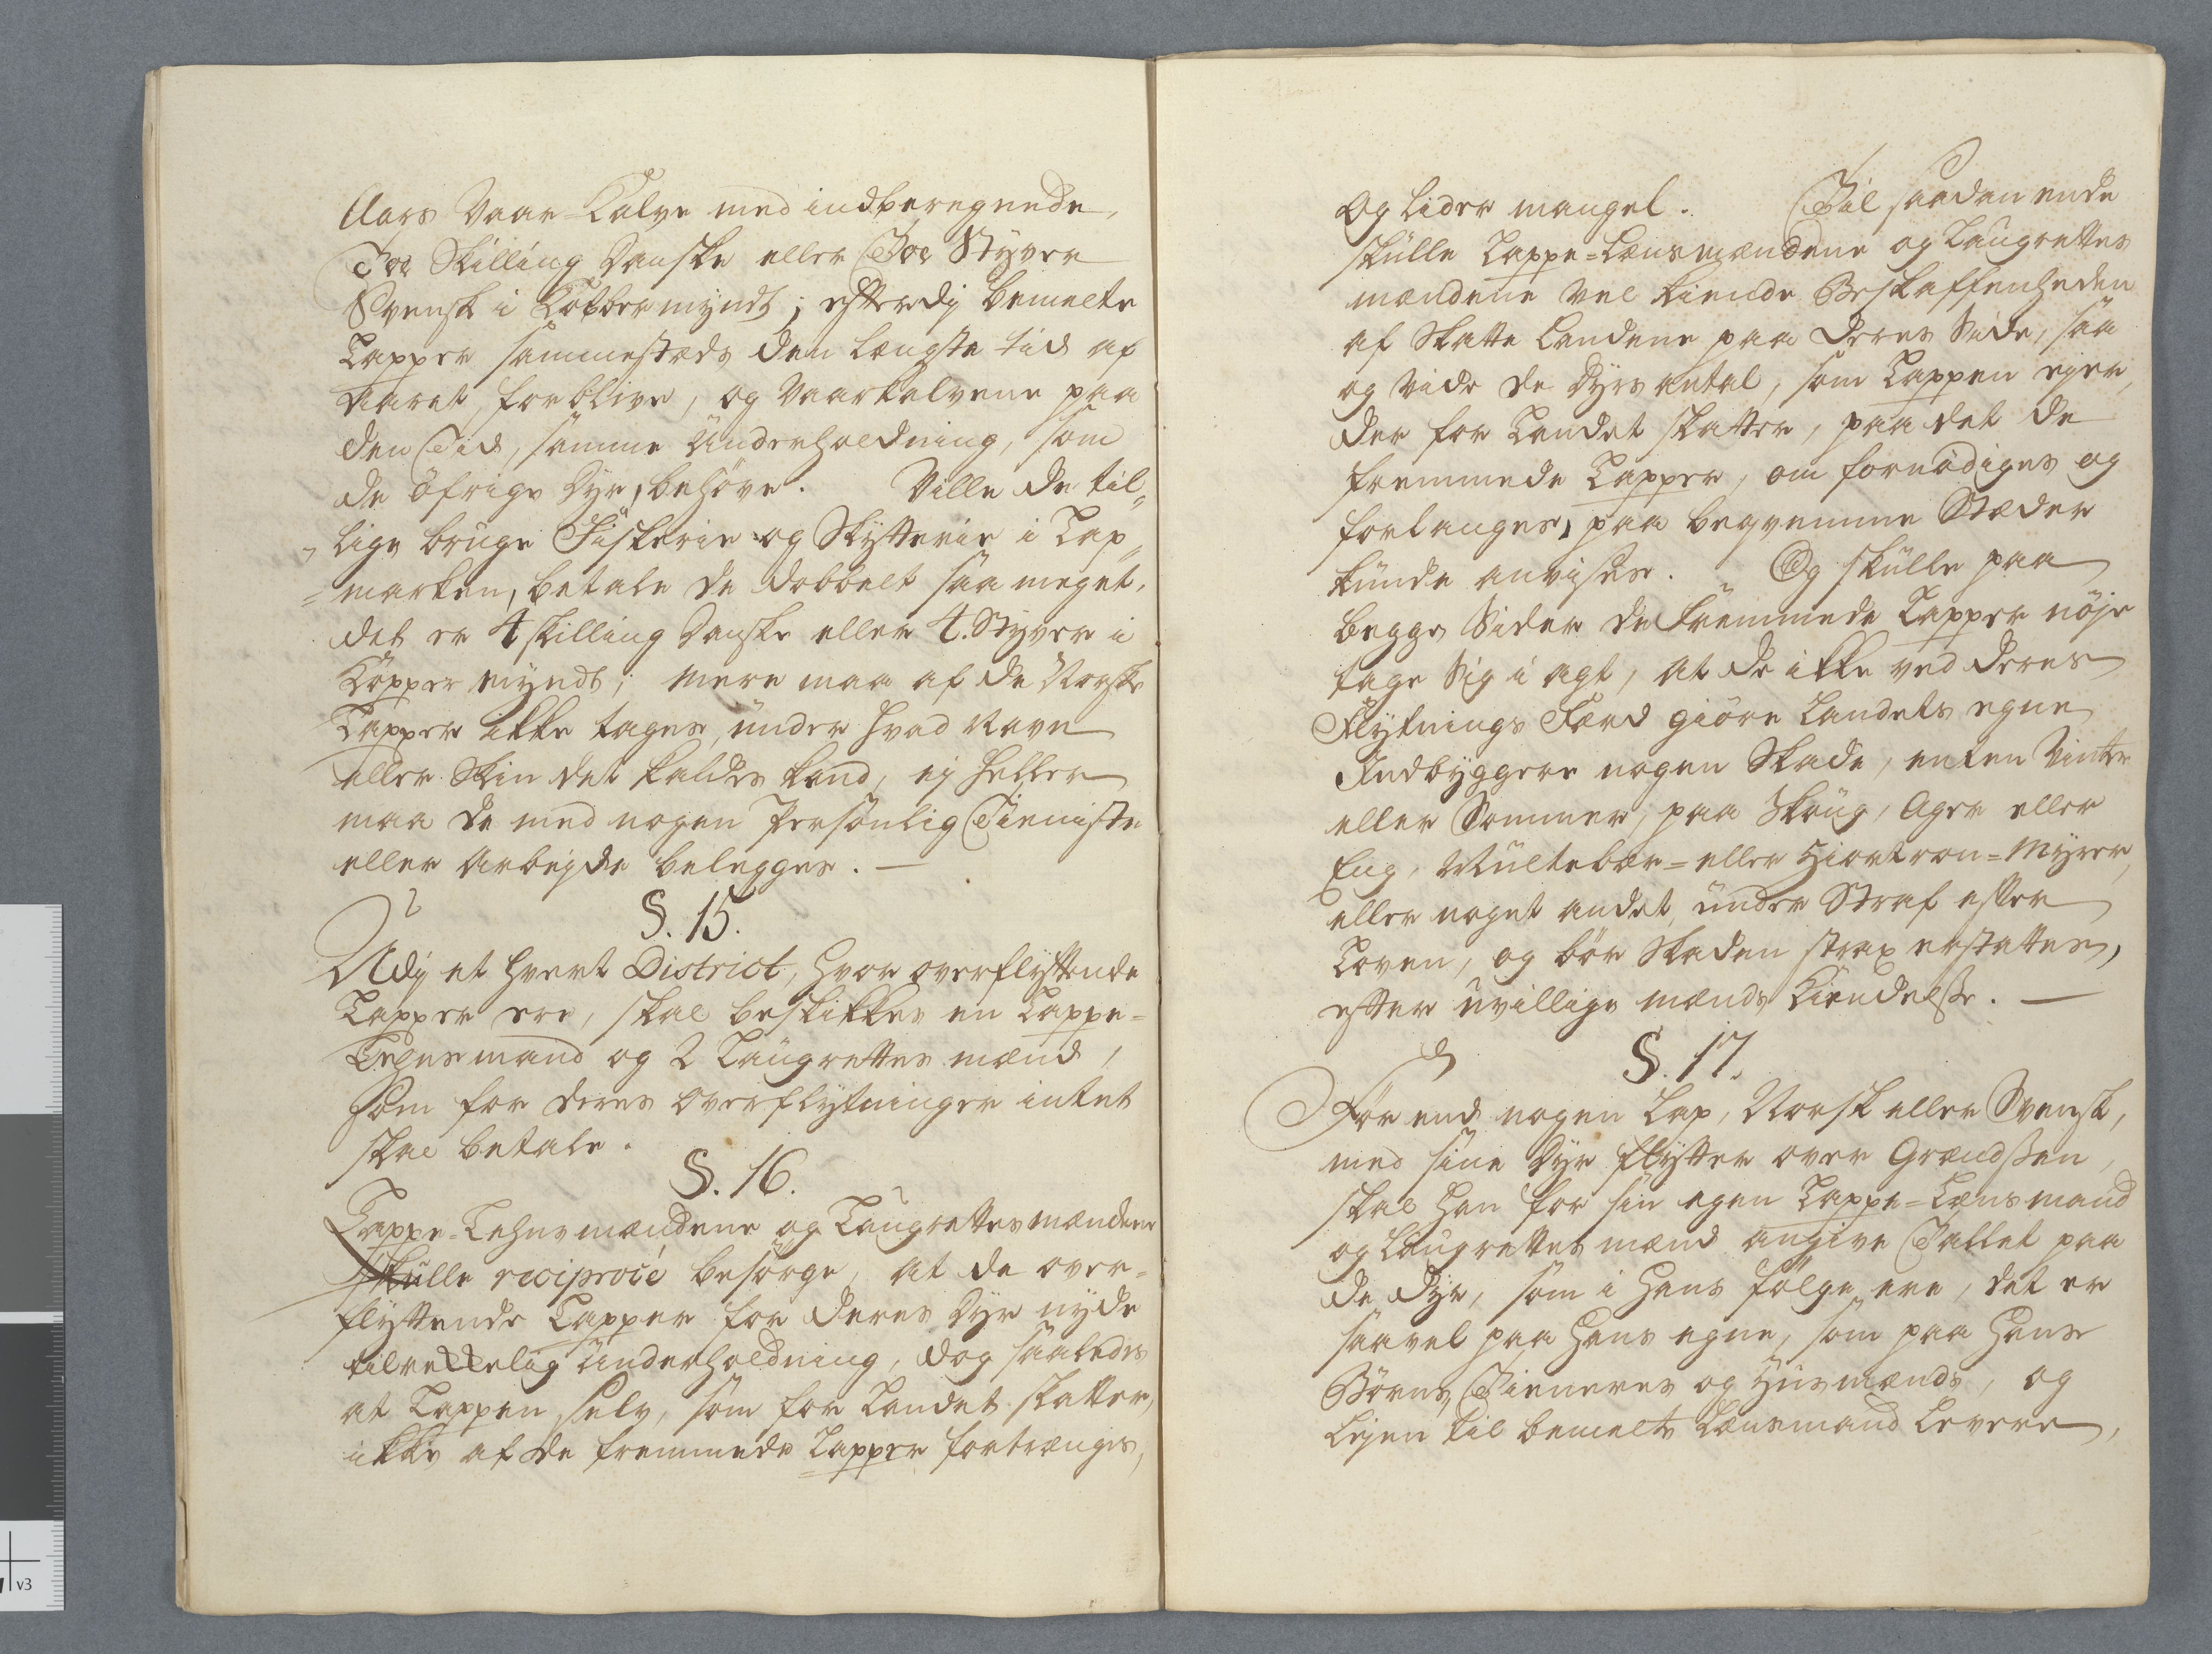 Aars Vaar-Kalve med indberegnede,
Toe Skilling Danske eller Toe Styver
Svensk i Kobbermyndt; efterdj bemelte
Lapper sammestæds den længste tid af
Aaret, forblive, og Vaarkalvene paa
den Tid, samme Underholdning, som
de öfrige Dyr, behöve. Ville de til„
„lige bruge Fiskerie og Skytterie i Lap„
=marken, betale de dobbelt saa meget,
det er 4 skilling Danske eller 4. Styver i
Kopper Myndt; Mere maa af de Norske
Lapper ikke tages, under hvad Navn
eller Skin det kaldes kand, ej heller
maa de med nogen Personlig Tieniste
eller Arbejde belegges. —
§. 15.
Udj et hvert District, hvor overflyttende
Lapper ere, skal beskikkes en Lappe=
Lehnsmand og 2 Laugrettes mænd,
som for deres overflytninger intet
skal betale.
§. 16.
Lappe-Lehnsmændene og Laugrettesmændene
skulle reciprocè besörge, at de over=
flyttende Lapper for deres Dyr nyde
tilrekkelig Underholdning, dog saaledes
at Lappen selv, som for Landet skatter,
ikke af de fremmede Lapper fortrænges,
og lider mangel. Til saadan ende
skulle Lappe=Lænsmændene og Laugrettes
mændene vel kiende Beskaffenheden
af Skatte Landene paa deres Side, saa
og vide de Dyrs antal, som Lappen ejer,
der for Landet skatter, paa det de
fremmede Lapper, om fornödiges og
forlanges, paa beqvemme Stæder
kunde anvises. Og skulle paa
begge Sider de Fremmede Lapper nöje
tage sig i agt, at de ikke ved deres
Flytnings Færd giöre Landets egne
Indbyggere nogen Skade, enten Vinter
eller Sommer, paa Skoug, Ager eller
Eng, Multebær= eller Hiortron=Myrer,
eller noget andet, under Straf efter
Loven, og bör Skaden strax erstattes,
efter uvillige mænds Kiendelse. —
§. 17.
For end nogen Lap, Norsk eller Svensk,
med sine Dyr flytter over Grændsen,
skal han for sin egen Lappe=Lænsmand
og Laugrettes mænd angive Tallet paa
de Dyr, som i hans fölge ere, det er
saavel paa hans egne, som paa hans
Börns, Tieneres og Husmænds, og
Lejen til bemelte Lænsmand levere,